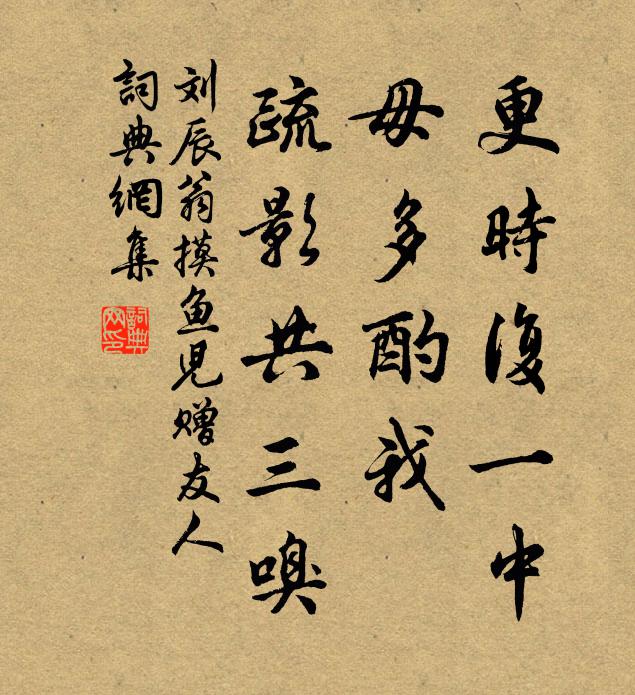 更時復一中
毋多酌我
疏影共三嗅
刘辰翁摸鱼児赠友人
詞典網集
詞典网印